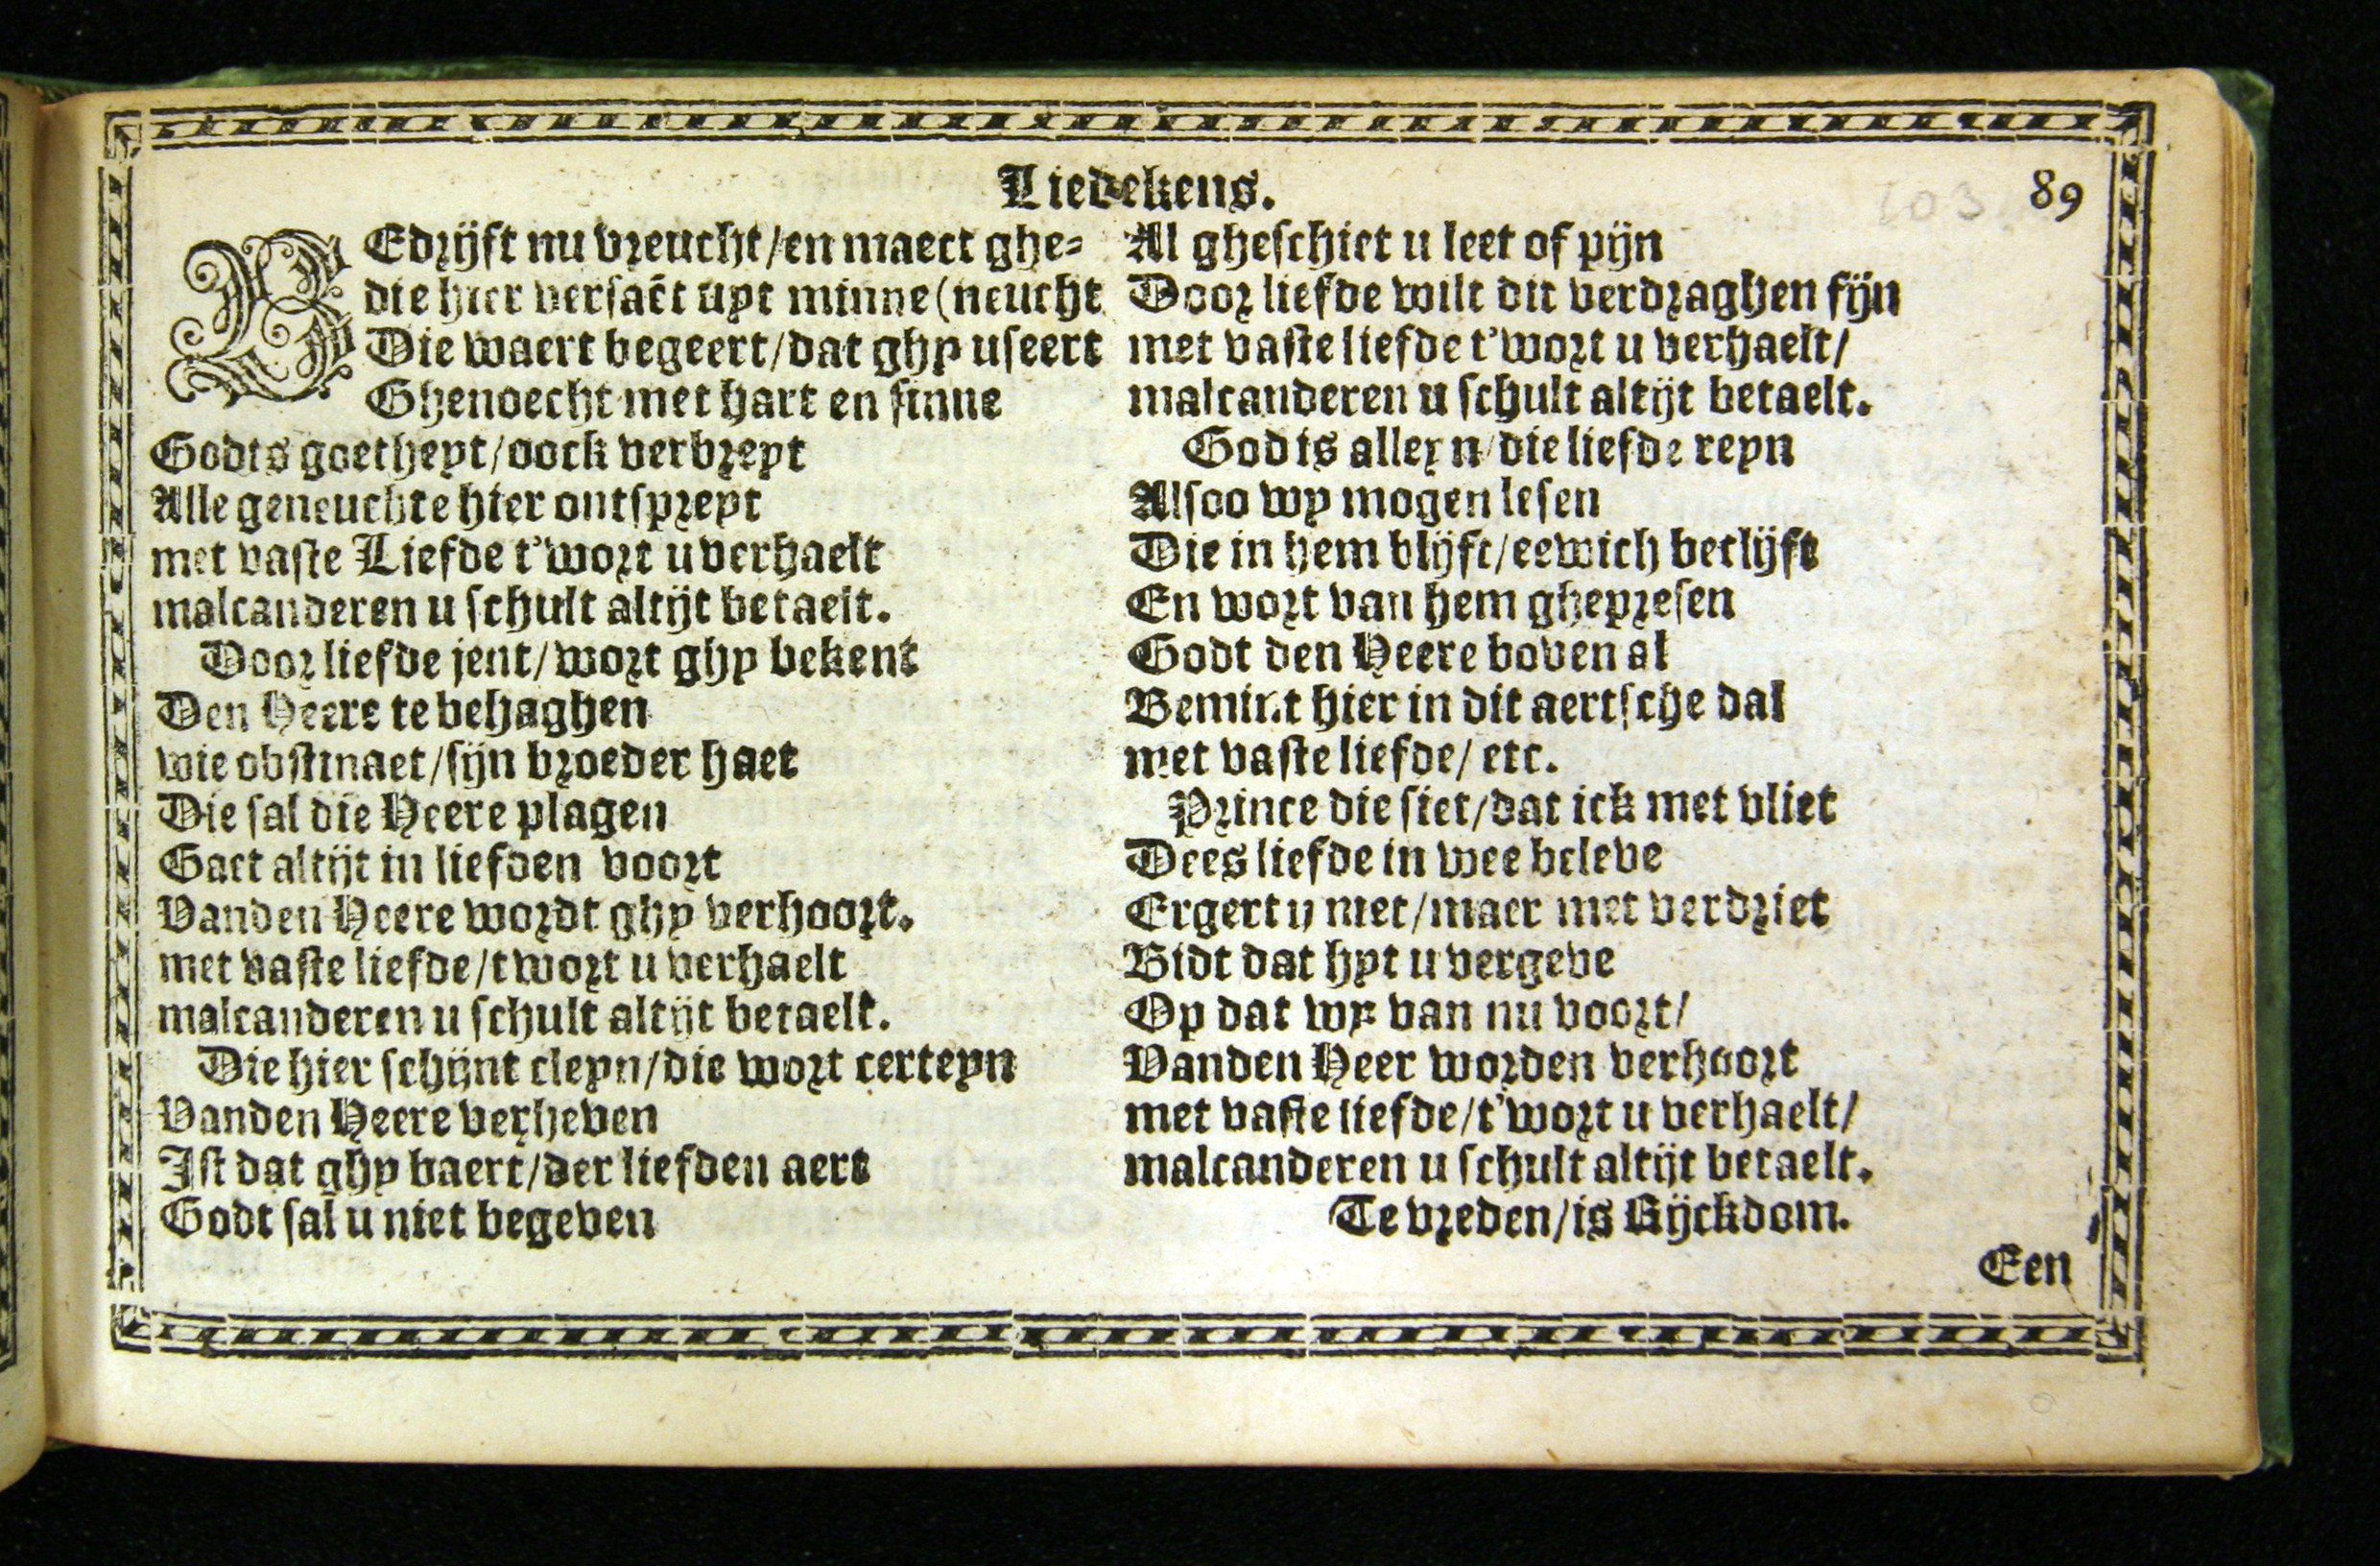 Liedekens.
89
BEdrijft nu vreucht/en maect ghe-
die hier versaẽt uyt minne (neucht
Die waert begeert/dat ghy useert
Ghenoecht met hart en sinne
Godts goetheyt/oock verbreyt
Alle geneuchte hier ontspreyt
met vaste Liefde t'wort u verhaelt
malcanderen u schult altijt betaelt.
Door liefde jent/wort ghy bekent
Den Heere te behaghen
wie obstinaet/sijn broeder haet
Die sal die Heere plagen
Gaet altijt in liefden voort
Vanden Heere wordt ghy verhoort.
met vaste liefde/twort u verhaelt
malcanderen u schult altijt betaelt.
Die hier schijnt cleyn/die wort certeyn
Vanden Heere verheven
Ist dat ghy baert/der liefden aert
Godt sal u niet begeven
Al gheschiet u leet of pijn
Door liefde wilt dit verdraghen fijn
met vaste liefde t'wort u verhaelt/
malcanderen u schult altijt betaelt.
God is alleyn/die liefde reyn
Alsoo wy mogen lesen
Die in hem blijft/eewich beclijft
En wort van hem ghepresen
Godt den Heere boven al
Bemint hier in dit aertsche dal
met vaste liefde/ etc.
Prince die siet/dat ick met vliet
Dees liefde in wee beleve
Ergert u niet/maer met verdriet
Bidt dat hyt u vergeve
Op dat wy van nu voort/
Vanden Heer worden verhoort
met vaste liefde/t'wort u verhaelt/
malcanderen u schult altijt betaelt.
Te vreden/is Rijckdom.
Een